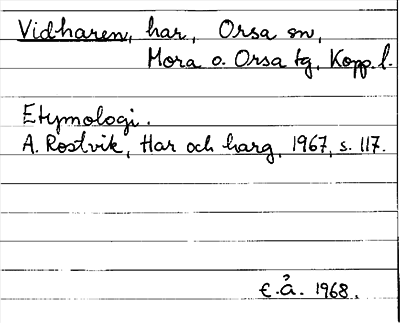 Vidharen, har, Orsa sn,
Mora o. Orsa tg, Kopp. l.
Etymologi.
A. Rostvik, Har och harg, 1967, s. 117.
€.å. 1968.